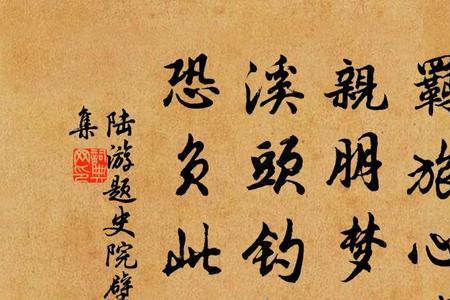 羈旅心
親朋梦
溪頭钓
恐负此
陆游题史院壁
集